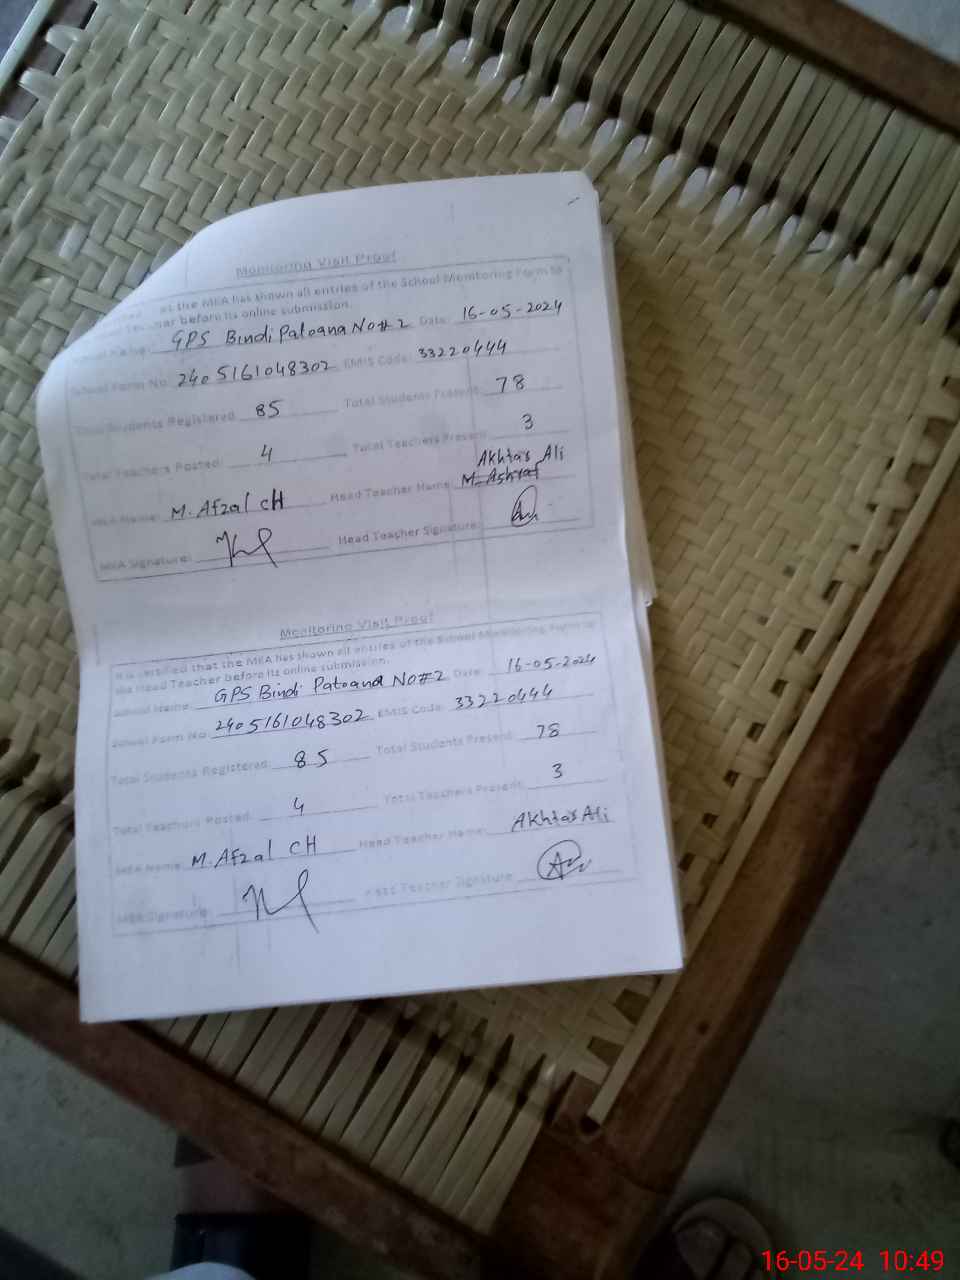 Monitoring Visit Proof
at the MEA has shown all entries of the School Monitoring Form to
before its online submission.
GPS Bindi Patoana No#2 Date: 16-05-2024
School Form No: 2405161048302 EMIS Code: 33220444
Total Students Registered: 85 Total Students Present: 78
Total Teachers Posted: 4 Total Teachers Present: 3
Akhtar Ali
MEA Name: M. Afzal CH Head Teacher Name: M. Ashraf
MEA Signature: Head Teacher Signature:
Monitoring Visit Proof
It is certified that the MEA has shown all entries of the School Monitoring Form to
the Head Teacher before its online submission.
School Name: GPS Bindi Patoana No#2 Date: 16-05-2024
School Form No: 2405161048302 EMIS Code: 33220444
Total Students Registered: 85 Total Students Present: 78
Total Teachers Posted: 4 Total Teachers Present: 3
MEA Name: M. Afzal CH Head Teacher Name: Akhtar Ali
MEA Signature: Teacher Signature:
16-05-24 10:49